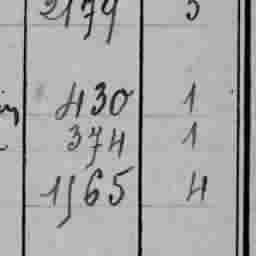 2179 5
430 1
374 1
1565 4